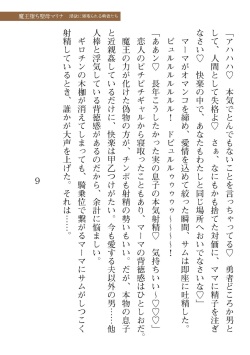 「アハハハ♡　本気でとんでもないことを言っちゃってる♡　勇者どころか男と
して、人間として失格よ♡　さぁ、なにもかも捨てた対価に、ママに精子を注ぎ
なさい♡　快楽の中で、あなたもわたしと同じ場所へおいでなさいな♡」
　マーマがオマンコを締め、愛情を込めて絞った瞬間、サムは即座に吐精した。
　ビュルルルルルル！　ドビュルルゥウゥウゥ〜〜〜〜〜！
「ああン♡　長年こうしたかった実の息子の本気射精♡　気持ちいい〜♡♡♡」
　恋人のビチビチギャルであったこともあり、マーマの背徳感はひとしおだ。
　魔王の力が化けた偽物の方が、チンポも射精の勢いもいい。だが、本物の息子
と近親姦しているだけに、快楽は甲乙つけがたい。今も愛する夫以外の男……他
人棒と浮気している背徳感があるのだから、余計に悩ましい。
　ギロチンの木棚が消えてしまっても、騎乗位で繋がるマーマにサムがしつこく
射精しているとき、誰かが大声を上げた。それは……。
9